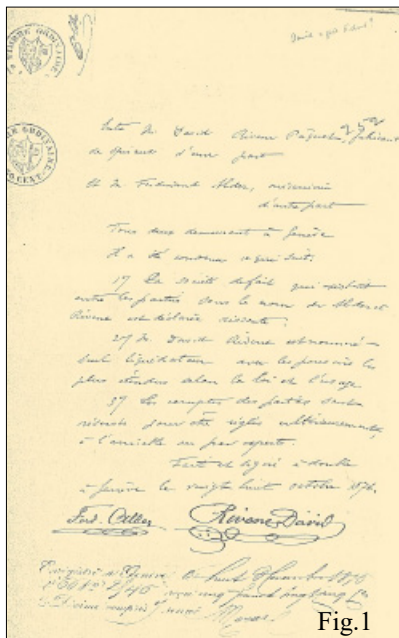 TIMBRE ORDINAIRE
David
Entre Mr David Rivene Paquette, fabricant
de d'une part
et Mr Ferdinand Alder, mécanicien
d'autre part
Tous deux demeurant à Genève
il a été convenu ce qui suit:
1º/ La société de fait qui existait
entre les parties sous le nom de Alder et
Rivene est déclarée dissoute.
2º/ Mr David Rivene est nommé
seul liquidateur avec les pouvoirs les
plus étendus selon la loi et l'usage
3º/ Les comptes des parties sont
réservés pour être réglés ultérieurement,
à l'amiable ou par experts.
Fait et signé à double
à Genève le vingt huit octobre 1876.
Ferd. Alder Rivene David
Enregistré à Genève le huit 1876
Fig.1